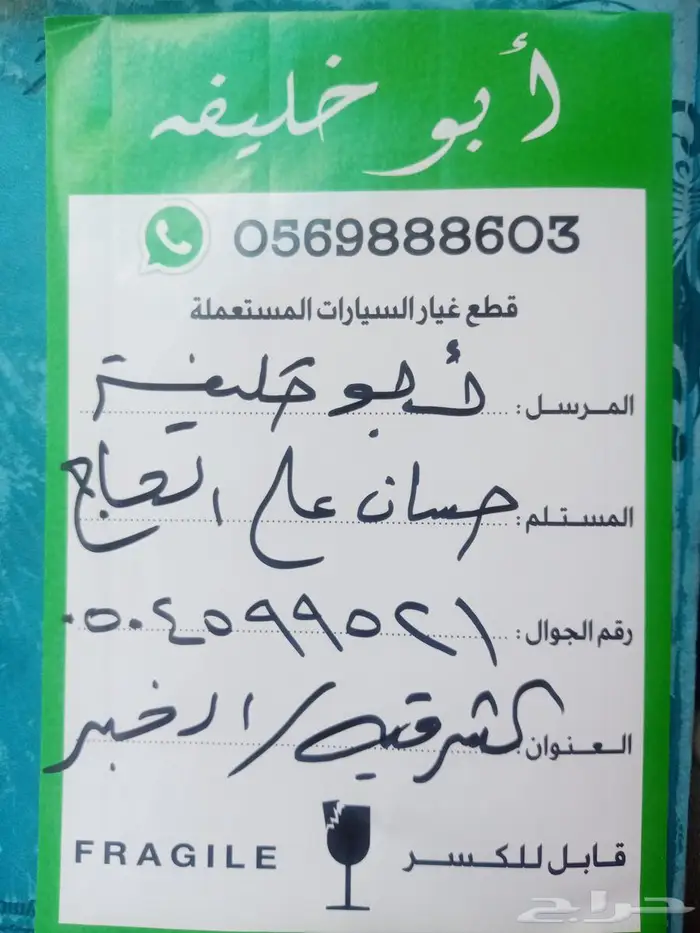 أبو خليفه
0569888603
قطع غيار السيارات المستعملة
المرسل: أبو خليفة
المستلم: حسان علي
رقم الجوال: ٠٥٠٤٥٩٩٥٢١
العنوان: الشرقيه / الخبر
FRAGILE قابل للكسر
حراج